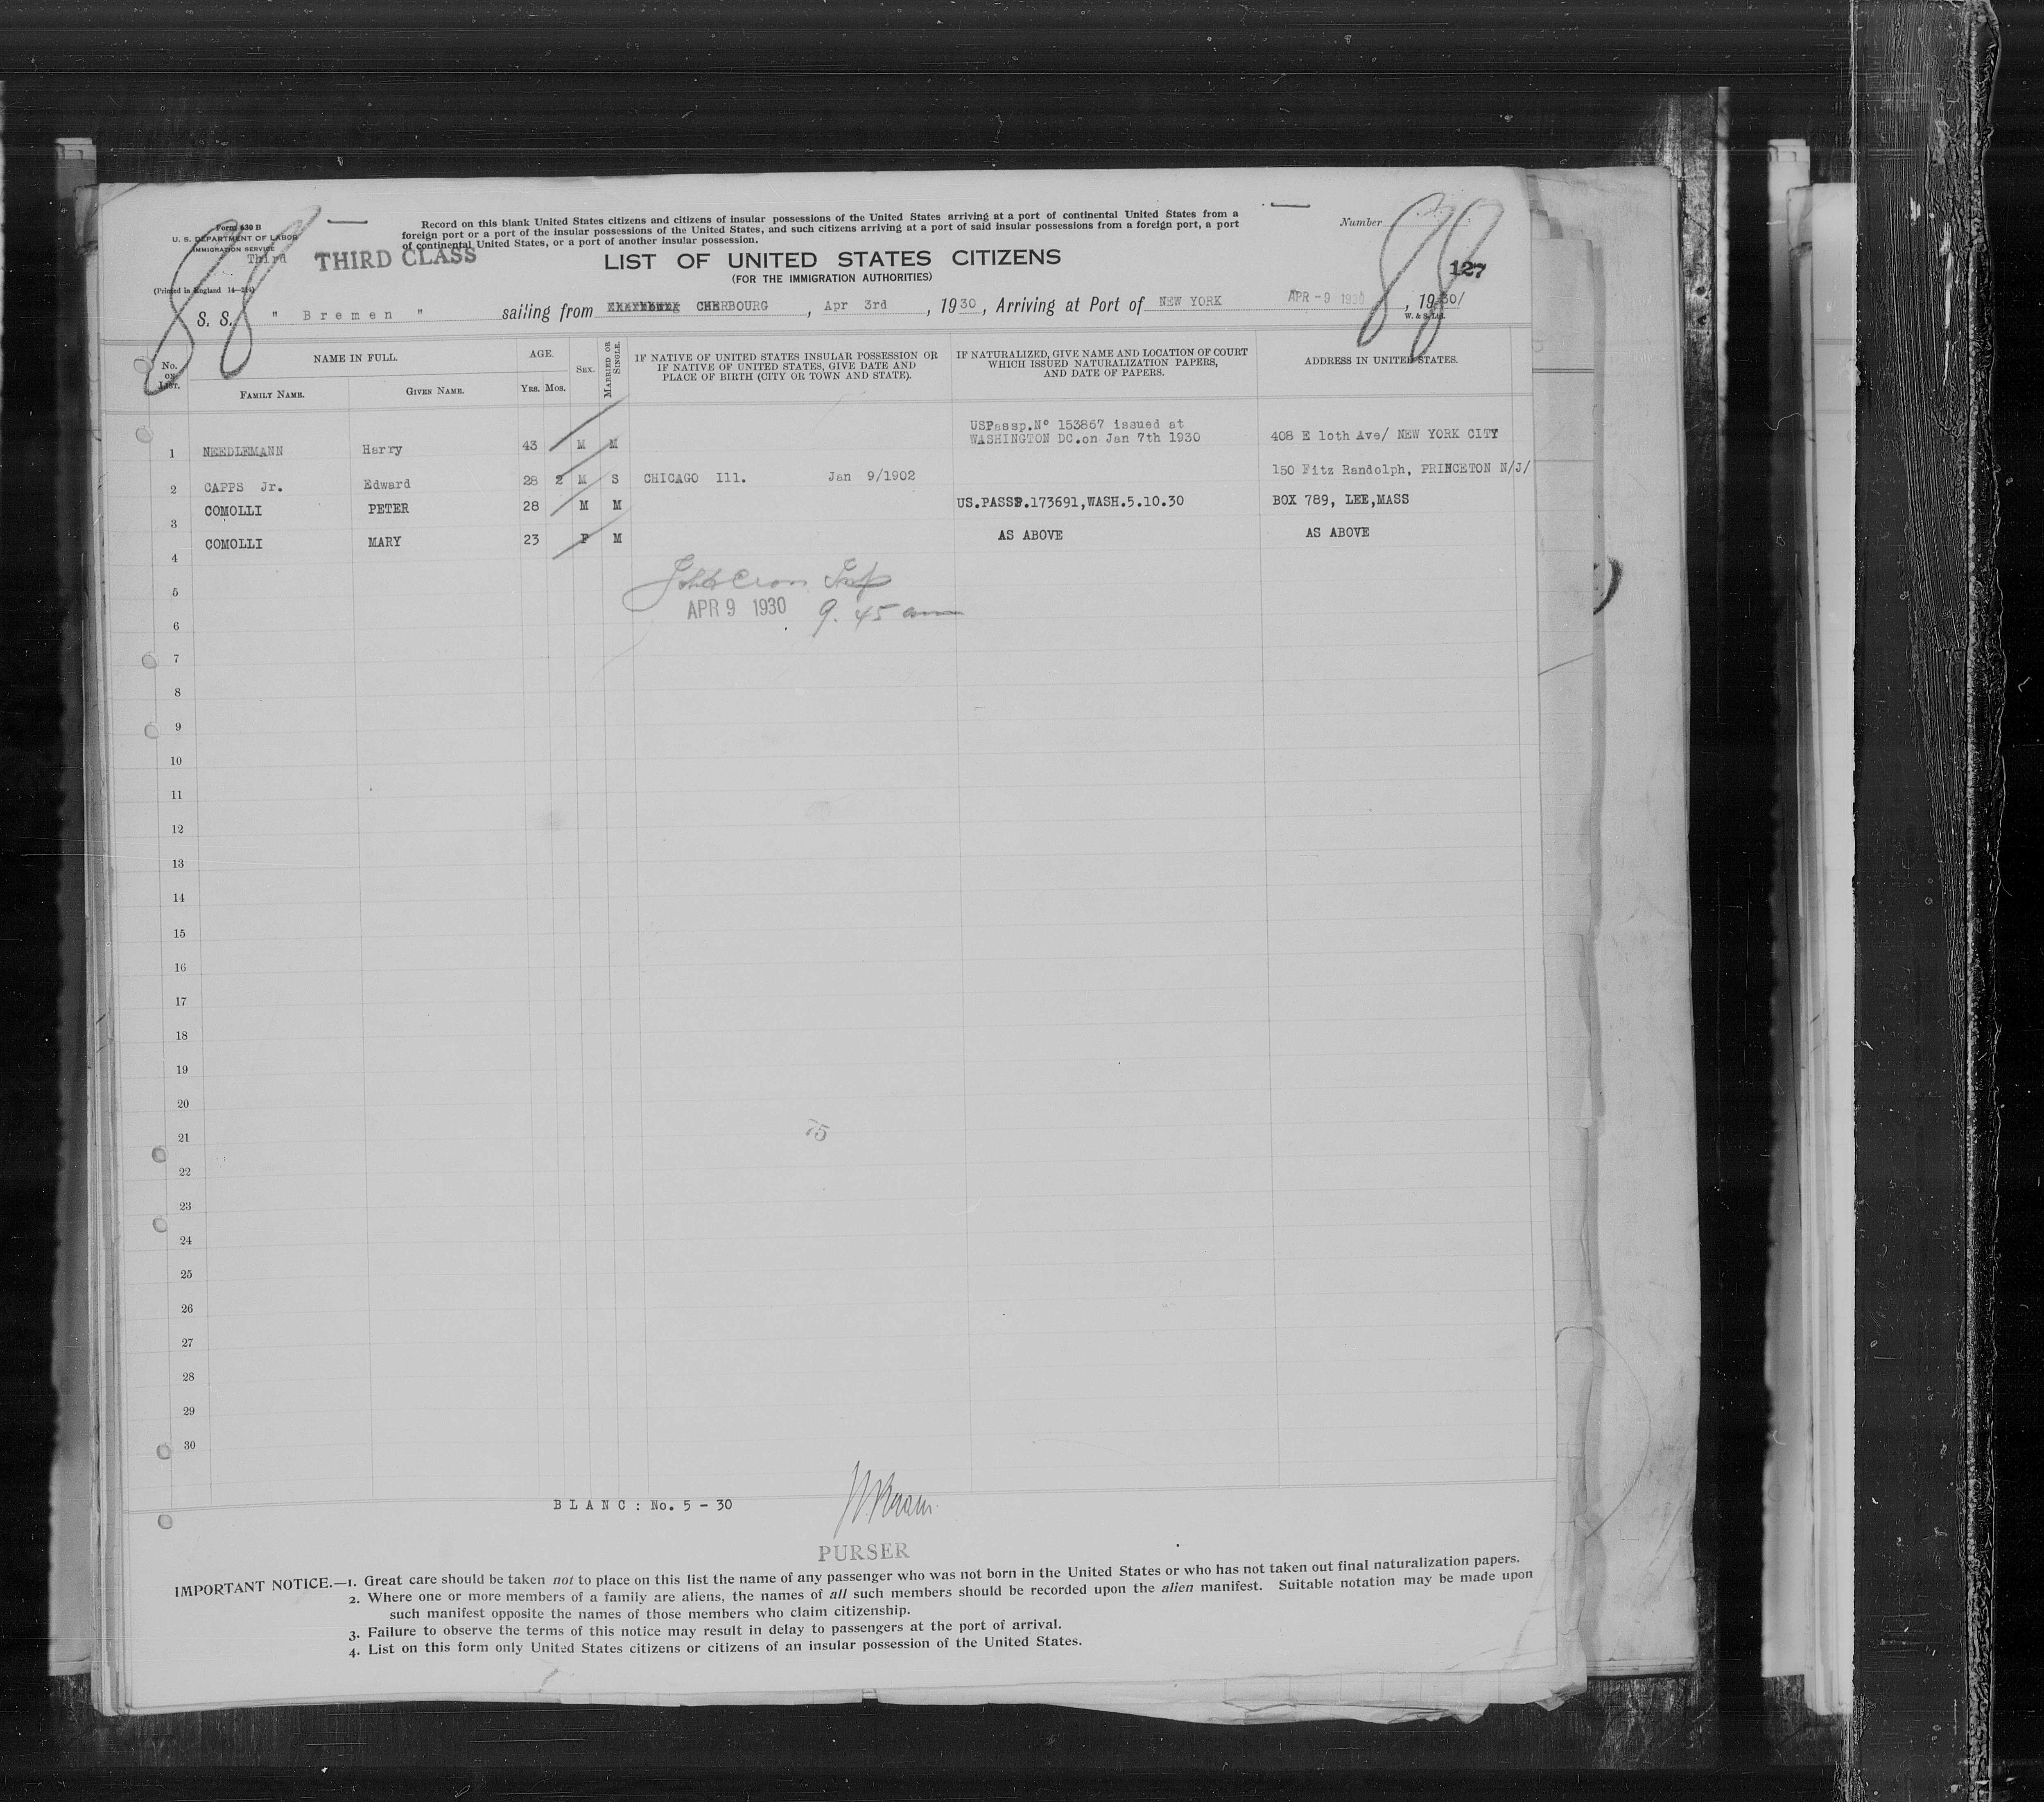 88
Form 630 B
U. S. DEPARTMENT OF LABOR
IMMIGRATION SERVICE
Third
THIRD CLASS
(Printed in England 14—2/4)
Record on this blank United States citizens and citizens of insular possessions of the United States arriving at a port of continental United States from a
foreign port or a port of the insular possessions of the United States, and such citizens arriving at a port of said insular possessions from a foreign port, a port
of continental United States, or a port of another insular possession.
Number
88
127
LIST OF UNITED STATES CITIZENS
(FOR THE IMMIGRATION AUTHORITIES)
S. S. " Bremen " sailing from CHERBOURG, Apr 3rd, 1930, Arriving at Port of NEW YORK APR -9 1930, 1930/
W. & S. Ltd.
No. on List. NAME IN FULL. AGE. SEX. MARRIED OR SINGLE. IF NATIVE OF UNITED STATES INSULAR POSSESSION OR IF NATIVE OF UNITED STATES, GIVE DATE AND PLACE OF BIRTH (CITY OR TOWN AND STATE). IF NATURALIZED, GIVE NAME AND LOCATION OF COURT WHICH ISSUED NATURALIZATION PAPERS, AND DATE OF PAPERS. ADDRESS IN UNITED STATES.
FAMILY NAME. GIVEN NAME. YRS. MOS.
1 NEEDLEMANN Harry 43 M M USPassp.No 153867 issued at WASHINGTON DC.on Jan 7th 1930 408 E 1oth Ave/ NEW YORK CITY
2 CAPPS Jr. Edward 28 2 M S CHICAGO Ill. Jan 9/1902 150 Fitz Randolph, PRINCETON N/J/
3 COMOLLI PETER 28 M M US.PASSP.173691,WASH.5.10.30 BOX 789, LEE,MASS
4 COMOLLI MARY 23 F M AS ABOVE AS ABOVE
5
Insp
APR 9 1930 9.45 am
6
7
8
9
10
11
12
13
14
15
16
17
18
19
20
21
75
22
23
24
25
26
27
28
29
30
BLANC: No. 5 - 30
PURSER
IMPORTANT NOTICE.—1. Great care should be taken not to place on this list the name of any passenger who was not born in the United States or who has not taken out final naturalization papers.
2. Where one or more members of a family are aliens, the names of all such members should be recorded upon the alien manifest. Suitable notation may be made upon
such manifest opposite the names of those members who claim citizenship.
3. Failure to observe the terms of this notice may result in delay to passengers at the port of arrival.
4. List on this form only United States citizens or citizens of an insular possession of the United States.